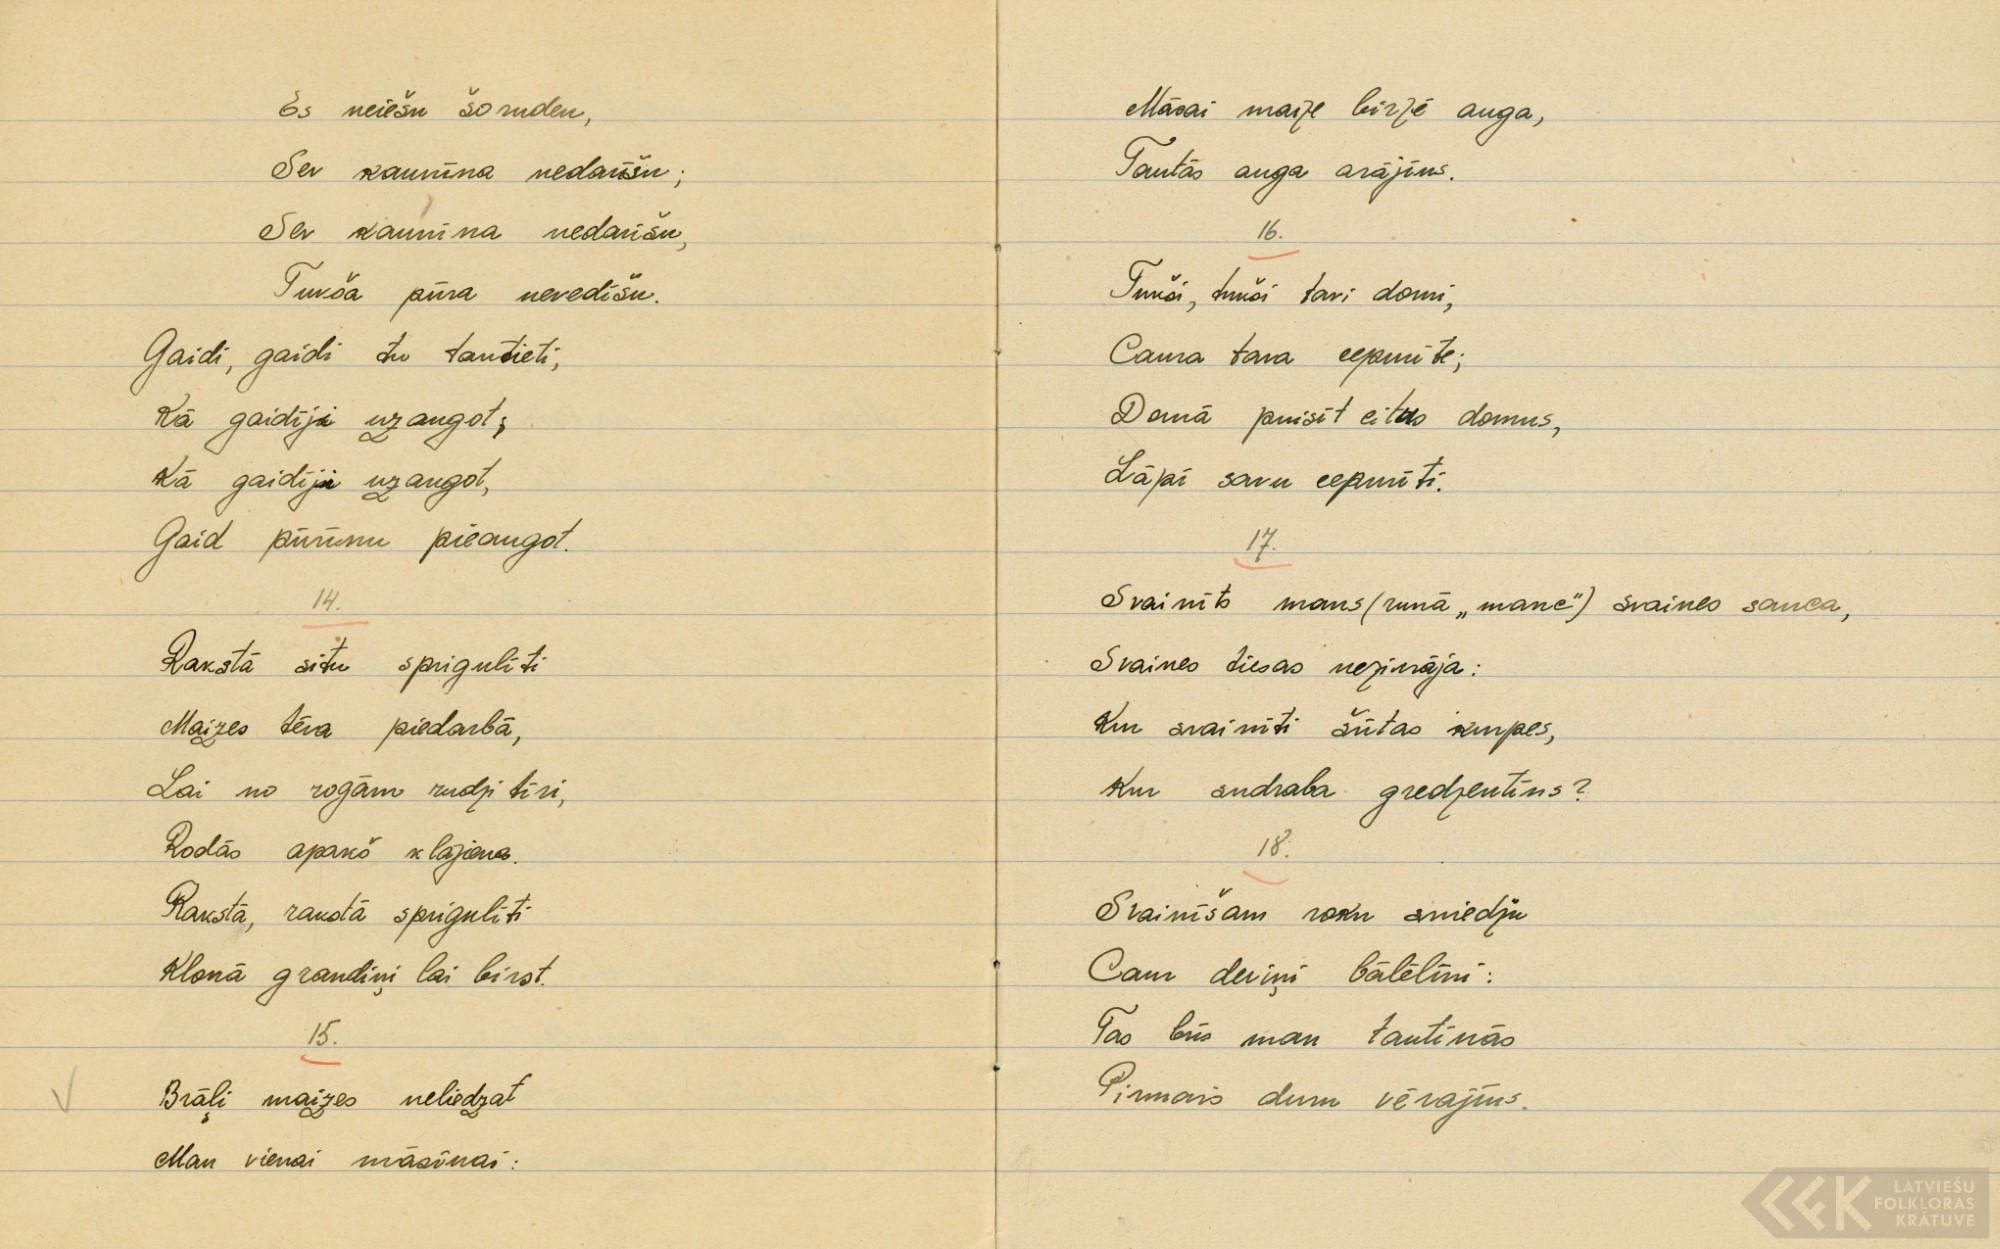 Es neiešu šoruden,
Sev kauniņa nedarīšu;
Sev kauniņa nedarīšu,
Tukša pūra nevedīšu.
Gaidi, gaidi tu tautieti,
Kā gaidīji uzaugot;
Kā gaidīji uzaugot,
Gaid pūriņu pieaugot.
14.
Rakstā situ spriguliti
Maizes tēva piedarbā,
Lai no rogām rudzi tīri,
Rodās apakš klajiena.
Rakstā, rakstā spriguliti
Klonā graudiņi lai birst.
15.
Brāļi maizes neliedzat
Man vienai māsiņai:
Māsai maize birzē auga,
Tautās auga arājiņš.
16.
Tukši, tukši tavi domi,
Caura tava cepurīte;
Domā puisīt citus domus,
Lāpi savu cepurīti.
17.
Svainīts mans (runā „manc") svaines sauca,
Svaines tiesas nezināja:
Kur svainīti šūtas kurpes,
Kur sudraba gredzentiņs?
18.
Svainīšam roku sniedzu
Caur deviņi bālēliņi:
Tas būs man tautiņās
Pirmais duru vērājiņs.
LATVIEŠU
FOLKLORAS
KRĀTUVE